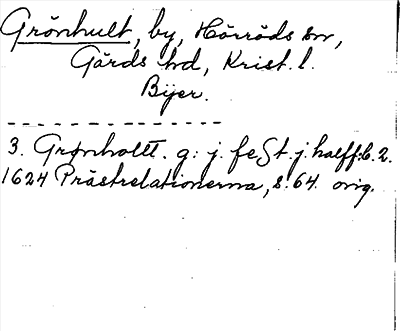 Grönhult, by, Hörröds sn,
Gärds hd, Krist. l.
Bijer.
3. Grønholtt. g: j. fe St. j. halff: b. 2.
1624 Prästrelationerna, s. 64. orig.